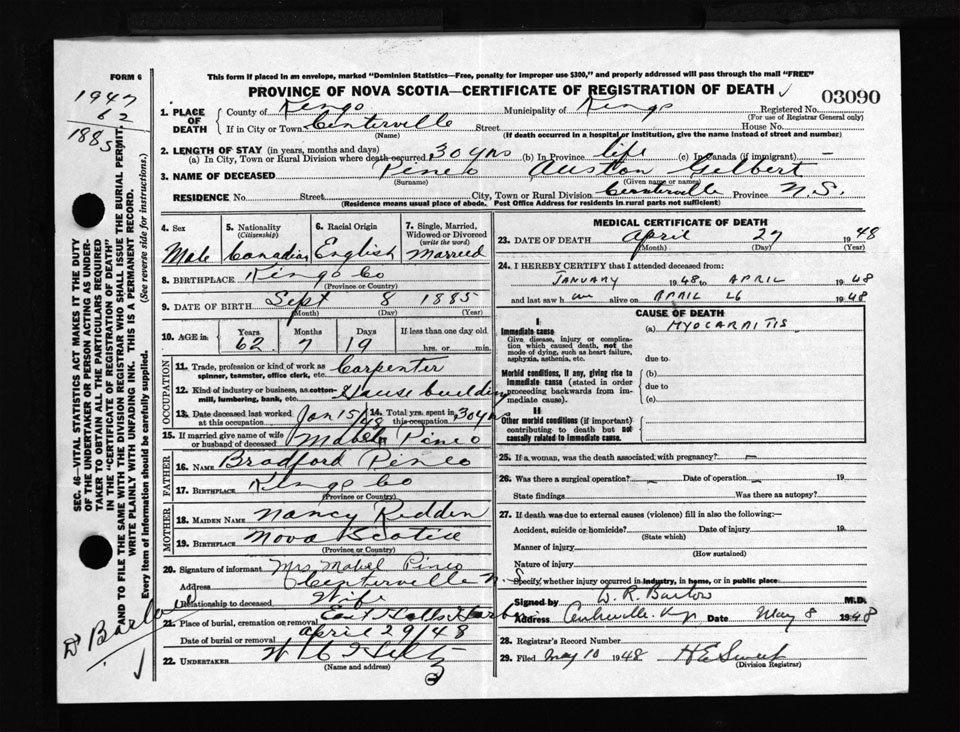 FORM 6
This form if placed in an envelope, marked "Dominion Statistics—Free, penalty for improper use $300," and properly addressed will pass through the mail "FREE"
PROVINCE OF NOVA SCOTIA—CERTIFICATE OF REGISTRATION OF DEATH
03090
1947
62
1885
1. PLACE OF DEATH County of Kings Municipality of Kings Registered No.
(For use of Registrar General only)
If in City or Town Centerville Street House No.
(Name) (If death occurred in a hospital or institution, give the name instead of street and number)
2. LENGTH OF STAY (in years, months and days)
(a) In City, Town or Rural Division where death occurred 30 yrs (b) In Province life (c) In Canada (if immigrant) —
3. NAME OF DECEASED Pineo Auston Gilbert
(Surname) (Given name or names)
RESIDENCE No. Street City, Town or Rural Division Centerville Province N.S.
(Residence means usual place of abode. Post Office Address for residents in rural parts not sufficient)
4. Sex 5. Nationality (Citizenship) 6. Racial Origin 7. Single, Married, Widowed or Divorced (write the word)
Male Canadian English Married
8. BIRTHPLACE Kings Co
(Province or County)
9. DATE OF BIRTH Sept 8 1885
(Month) (Day) (Year)
10. AGE in Years Months Days If less than one day old
62 7 19 hrs. or min.
OCCUPATION
11. Trade, profession or kind of work as spinner, teamster, office clerk, etc. Carpenter
12. Kind of industry or business, as cotton-mill, lumbering, bank, etc. House building
13. Date deceased last worked at this occupation Jan 15/48 14. Total yrs. spent in this occupation 30 yrs
15. If married give name of wife or husband of deceased Mabel Pineo
FATHER
16. NAME Bradford Pineo
17. BIRTHPLACE Kings Co
(Province or County)
MOTHER
18. MAIDEN NAME Nancy Redden
19. BIRTHPLACE Nova Scotia
(Province or Country)
20. Signature of informant Mrs Mabel Pineo
Address Centerville N.S.
Relationship to deceased Wife
21. Place of burial, cremation or removal East Halls Harbor
Date of burial or removal April 29/48
22. UNDERTAKER W H Hiltz
(Name and address)
MEDICAL CERTIFICATE OF DEATH
23. DATE OF DEATH April 27 1948
(Month) (Day) (Year)
24. I HEREBY CERTIFY that I attended deceased from:
JANUARY 1948 to APRIL 1948
and last saw him alive on APRIL 26 1948
CAUSE OF DEATH
I
Immediate cause (a) MYOCARDITIS
Give disease, injury or complication which caused death, not the mode of dying, such as heart failure, asphyxia, asthenia, etc.
due to
Morbid conditions, if any, giving rise to immediate cause (stated in order proceeding backwards from immediate cause).
(b)
due to
(c)
II
Other morbid conditions (if important) contributing to death but not causally related to immediate cause.
25. If a woman, was the death associated with pregnancy? —
26. Was there a surgical operation? — Date of operation — 19
State findings Was there an autopsy?
27. If death was due to external causes (violence) fill in also the following:—
Accident, suicide or homicide? Date of injury 19
(State which)
Manner of injury
(How sustained)
Nature of injury
Specify whether injury occurred in industry, in home, or in public place
Signed by W. R. Barlow M.D.
Address Date May 8 1948
28. Registrar's Record Number
29. Filed May 10 1948 H E Sweet
(Division Registrar)
SEC. 46—VITAL STATISTICS ACT MAKES IT THE DUTY
OF THE UNDERTAKER OR PERSON ACTING AS UNDER-
TAKER TO OBTAIN ALL THE PARTICULARS REQUIRED
IN THE "CERTIFICATE OF REGISTRATION OF DEATH"
AND TO FILE THE SAME WITH THE DIVISION REGISTRAR WHO SHALL ISSUE THE BURIAL PERMIT.
WRITE PLAINLY WITH UNFADING INK. THIS IS A PERMANENT RECORD.
Every item of information should be carefully supplied. (See reverse side for instructions.)
Dr Barlow